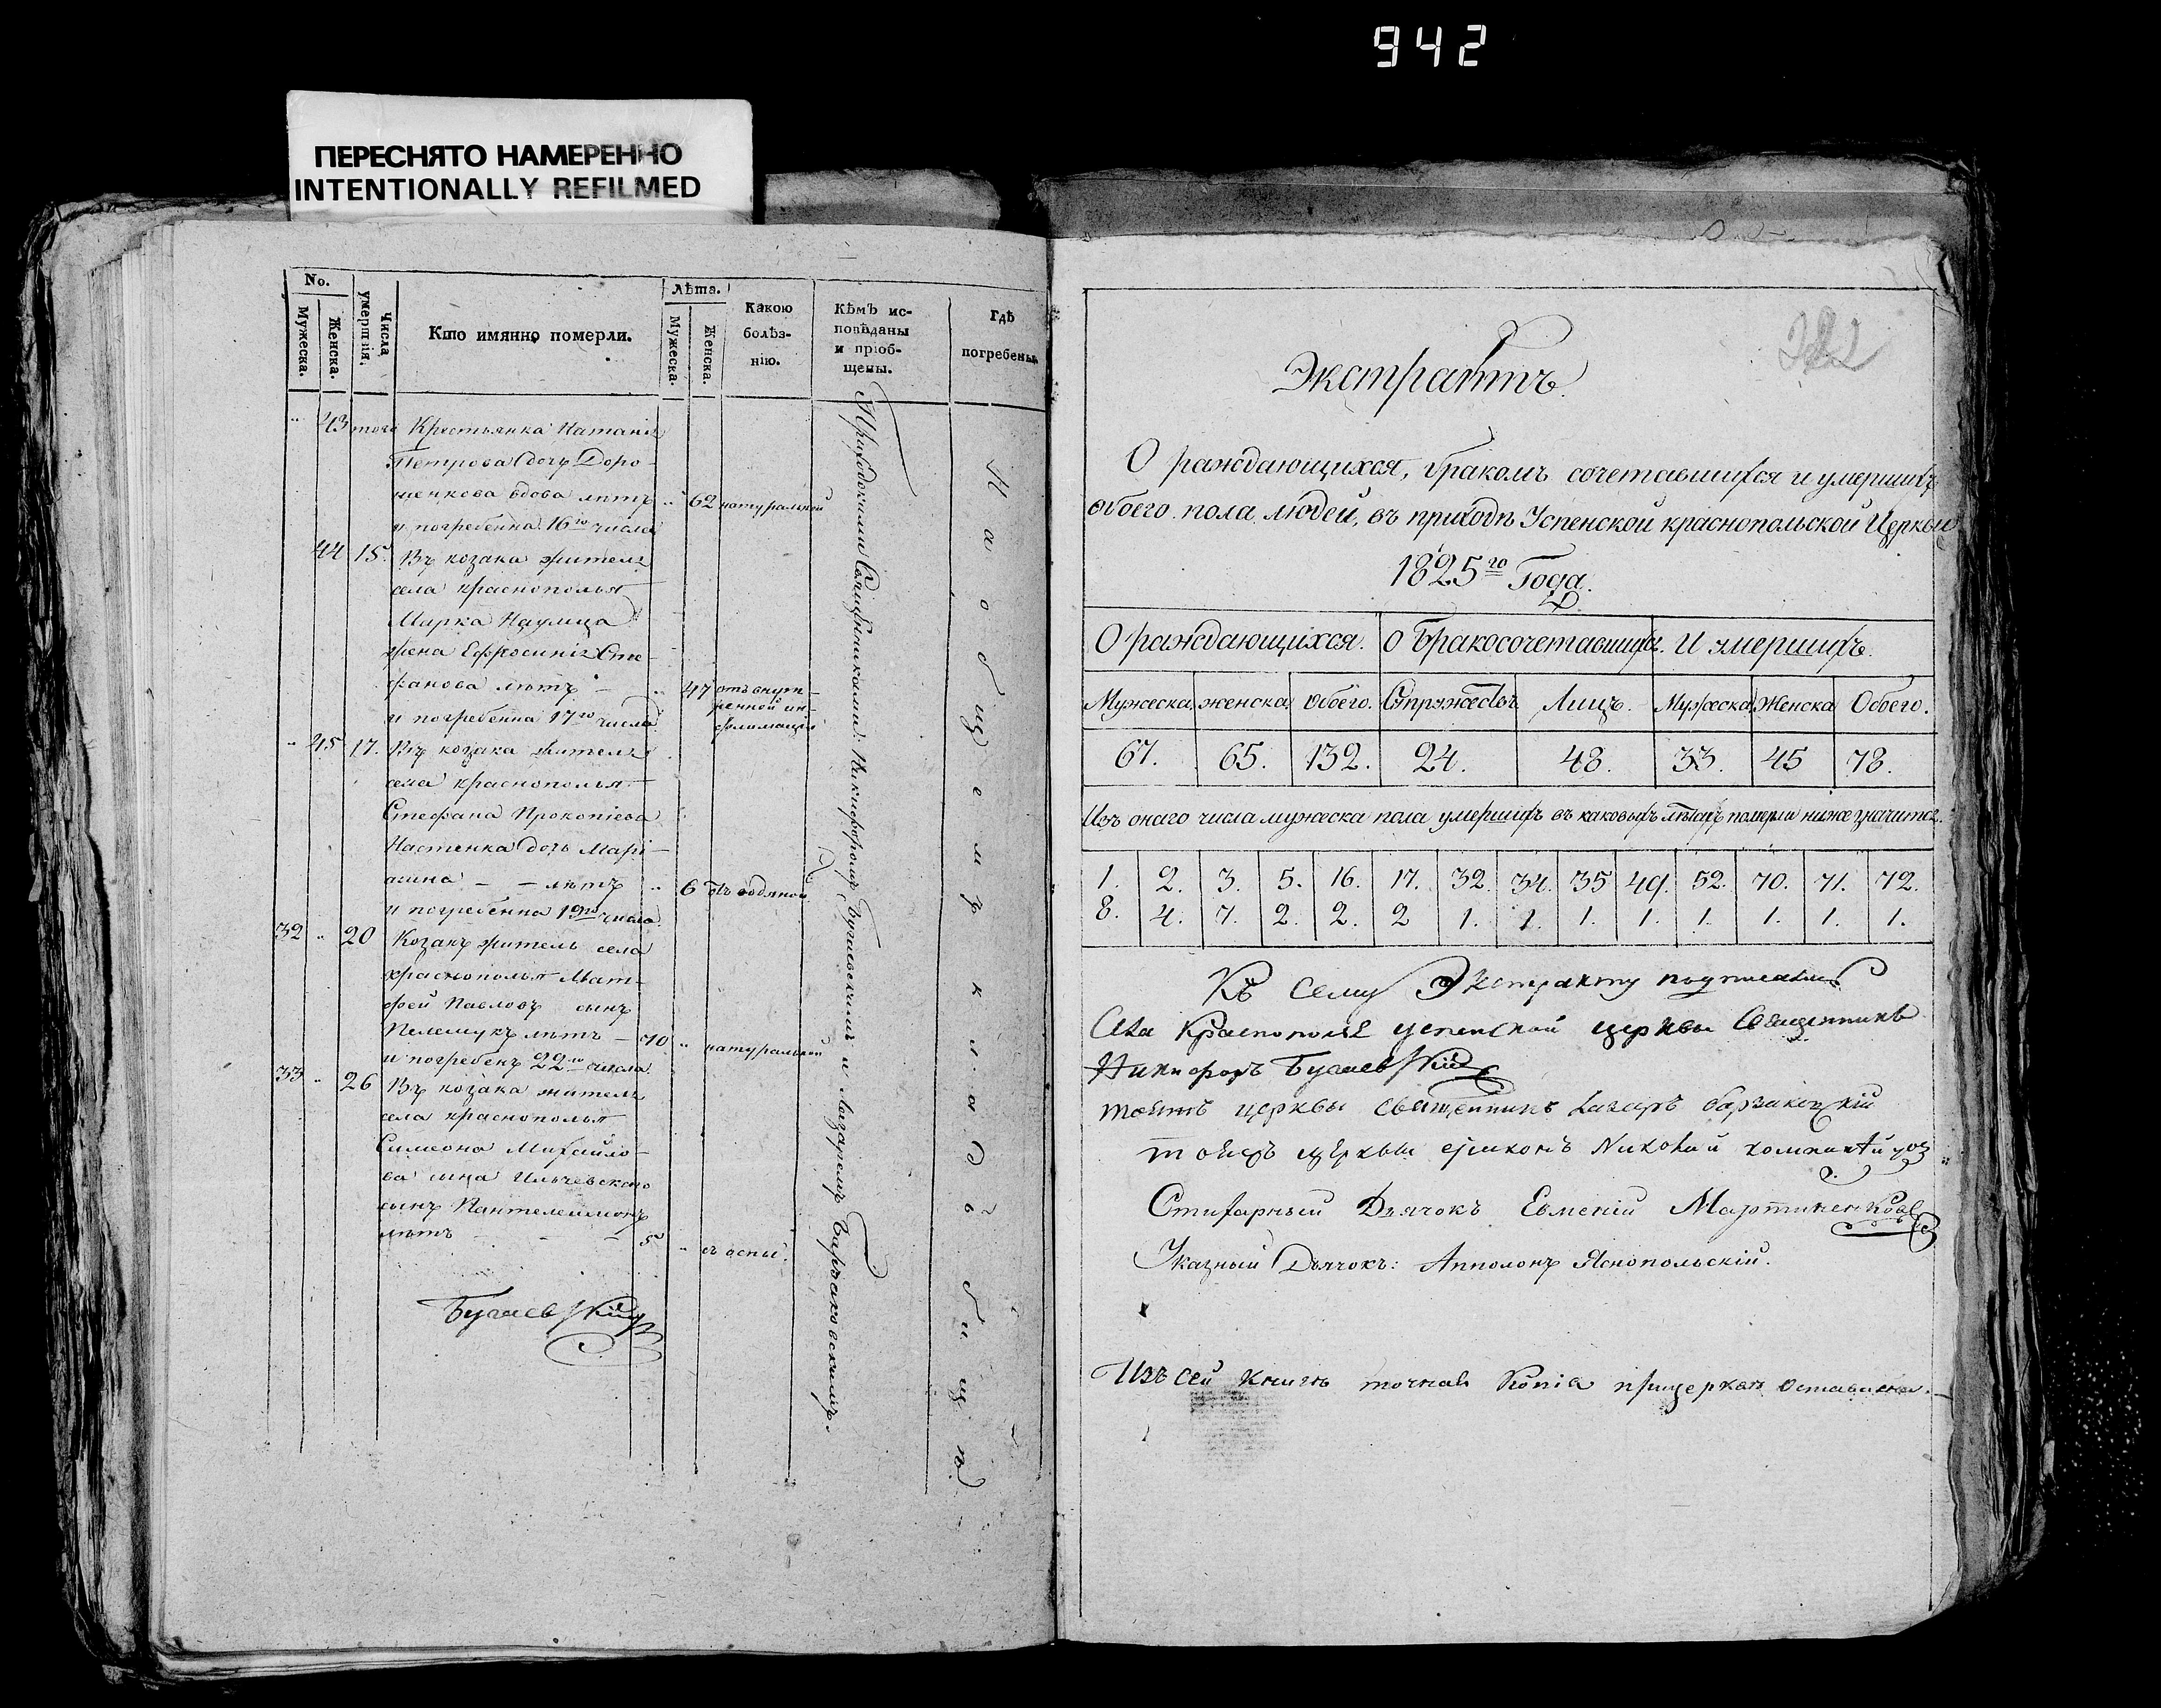 942
ПЕРЕСНЯТО НАМЕРЕННО
INTENTIONALLY REFILMED
No.
Мужеска.
Женска.
Числа умертвія.
Кто имянно померли.
Лѣта.
Мужеска.
Женска.
Какою болѣз-
нію.
Кѣмъ ис-
повѣданы
и пріоб-
щены.
Гдѣ
погребены.
" 43 того Крестьянка Наталія
Петрова дочь Доро-
шенкова вдова лѣтъ " 62 натуральной
и погребенна 16го числа
44 15. Въ козака жителя
села краснополья
Марка Наумца
жена Ефросинія Сте-
фанова лѣтъ - " 47 отъ внут-
ренной ин-
флимаціи
и погребенна 17го числа
" 45 17. Въ козака жителя
села краснополья
Стефана Прокопіева
Настенка дочь Марі-
анна - - лѣтъ " 6 отъ водяной
и погребенна 19го числа
32 " 20 Козакъ житель села
краснополья Мат-
фей Павловъ сынъ
Пелемукъ лѣтъ - 70 " натуральной
и погребенъ 22го числа
33 " 26 Въ козака жителя
села краснополья
Симеона Михайло-
ва сына Ильчевского
сынъ Пантелеимонъ
лѣтъ - - 5 " съ оспы.
Бугаевскій
Приходскими Священниками: Никифоромъ Бугаевскимъ и Лазаремъ Барзаковскимъ.
На общемъ кладбищѣ
322
Экстрактъ
О раждающихся, бракомъ сочетавшихся и умершихъ
обоего пола людей, въ приходѣ Успенской краснопольской Церкви
1825го Года.
О раждающихся. О бракосочетавшихся. И умершихъ.
Мужеска женска Обоего. Супружествъ Лицъ. Мужеска Женска Обоего.
67. 65. 132. 24. 48. 33. 45 78.
Изъ онаго числа мужеска пола умершихъ въ каковыхъ лѣтахъ померли ниже значится.
1. 2. 3. 5. 16. 17. 32. 34. 35 49. 52. 70. 71. 72.
8. 4. 7. 2. 2. 2 1. 1. 1. 1. 1. 1. 1. 1.
Къ сему Экстракту подписались
Села Краснополя успенской церкви Священникъ
Никифоръ Бугаевскій
тоейжъ церквы священникъ Лазаръ барзаковскій
тоейжъ церквы Николай
Стихарный Дьячокъ Евменій Мартиненковъ
Указный Дьячокъ: Апполонъ Яснопольскій.
Изъ сей книги точная Копія прицеркви оставлена.